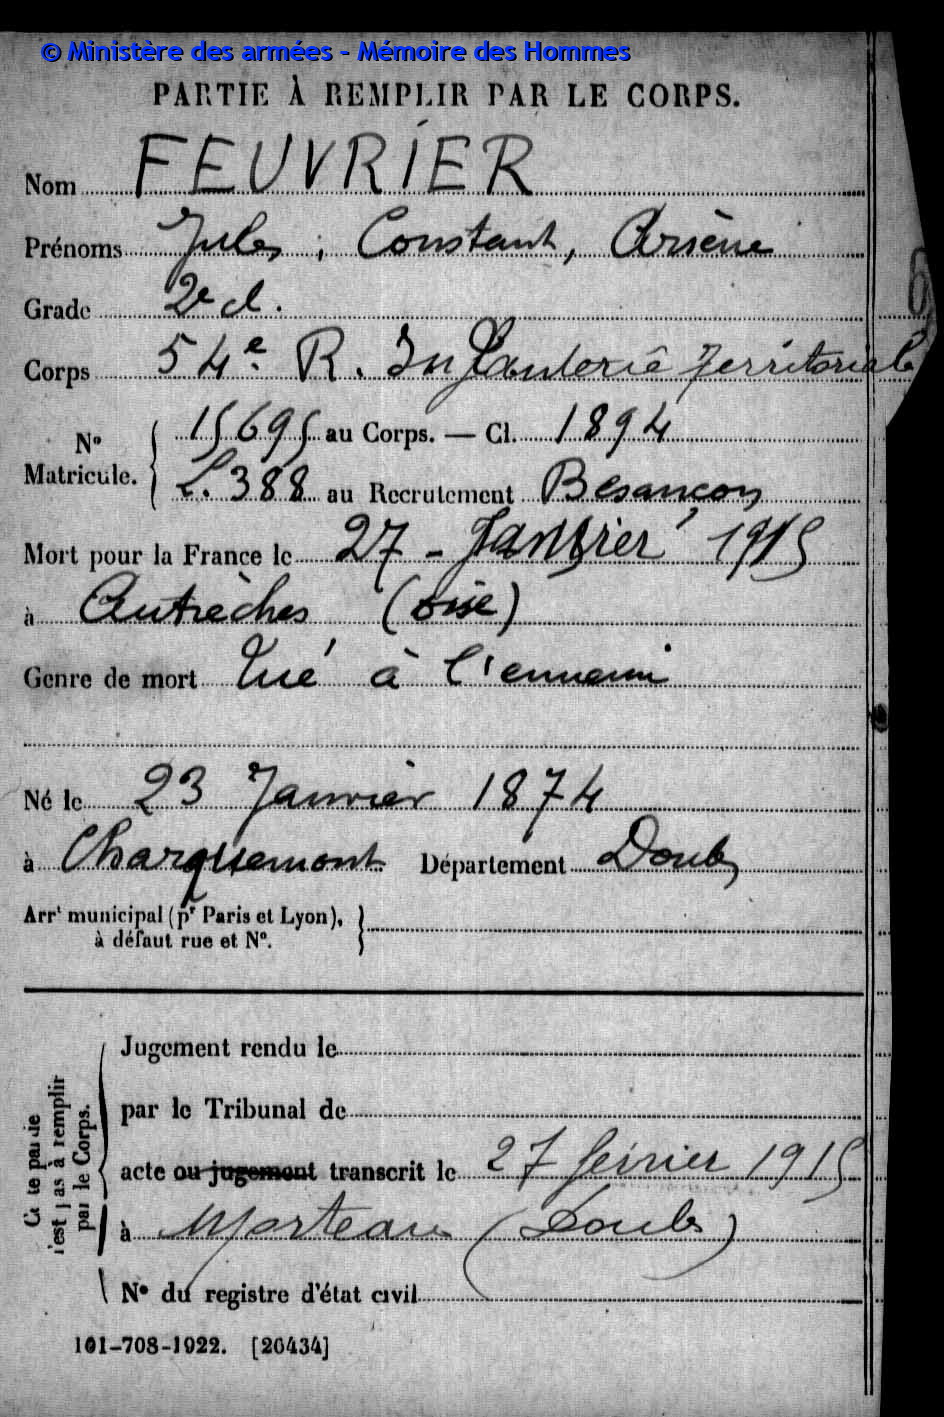 © Ministère des armées - Mémoire des Hommes
PARTIE À REMPLIR PAR LE CORPS.
Nom FEUVRIER
Prénoms Jules, Constant, Arsène
Grade 2e cl.
Corps 54e R. Infanterie Territoriale
N° Matricule. { 15695 au Corps. — Cl. 1894
L. 388 au Recrutement Besançon
Mort pour la France le 27 - Janvier 1915
à Autrèches (Oise)
Genre de mort Tué à l'ennemi
Né le 23 Janvier 1874
à Charquemont Département Doubs
Arrt municipal (pr Paris et Lyon), }
à défaut rue et N°.
Jugement rendu le
par le Tribunal de
acte ou jugement transcrit le 27 février 1915
à Morteau (Doubs)
N° du registre d'état civil
Cette partie
n'est pas à remplir
par le Corps.
101-708-1922. [26434]